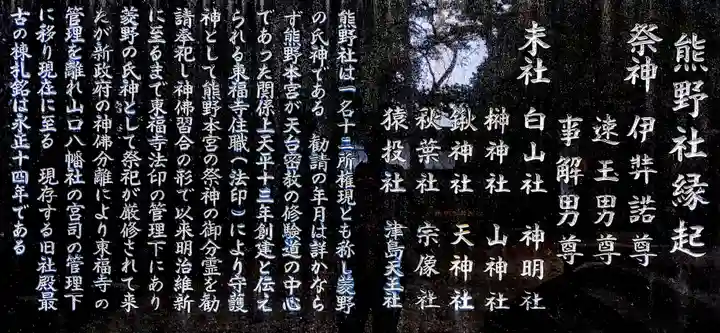 熊野社縁起
祭神 伊弉諾尊
速王男尊
事解男尊
末社 白山社 神明社
榊神社 山神社
鍬神社 天神社
秋葉社 宗像社
猿投社 津島天王社
熊野社は一名十三所権現とも称し菱野
の氏神である 勧請の年月は詳かなら
ず熊野本宮が天台密教の修験道の中心
であった関係上天平十三年創建と伝え
られる東福寺住職(法印)により守護
神として熊野本宮の祭神の御分霊を勧
請奉祀し神佛習合の形で以来明治維新
に至るまで東福寺法印の管理下にあり
菱野の氏神として祭祀が厳修されて来
たが新政府の神佛分離により東福寺の
管理を離れ山口八幡社の宮司の管理下
に移り現在に至る 現存する旧社殿最
古の棟札銘は永正十四年である